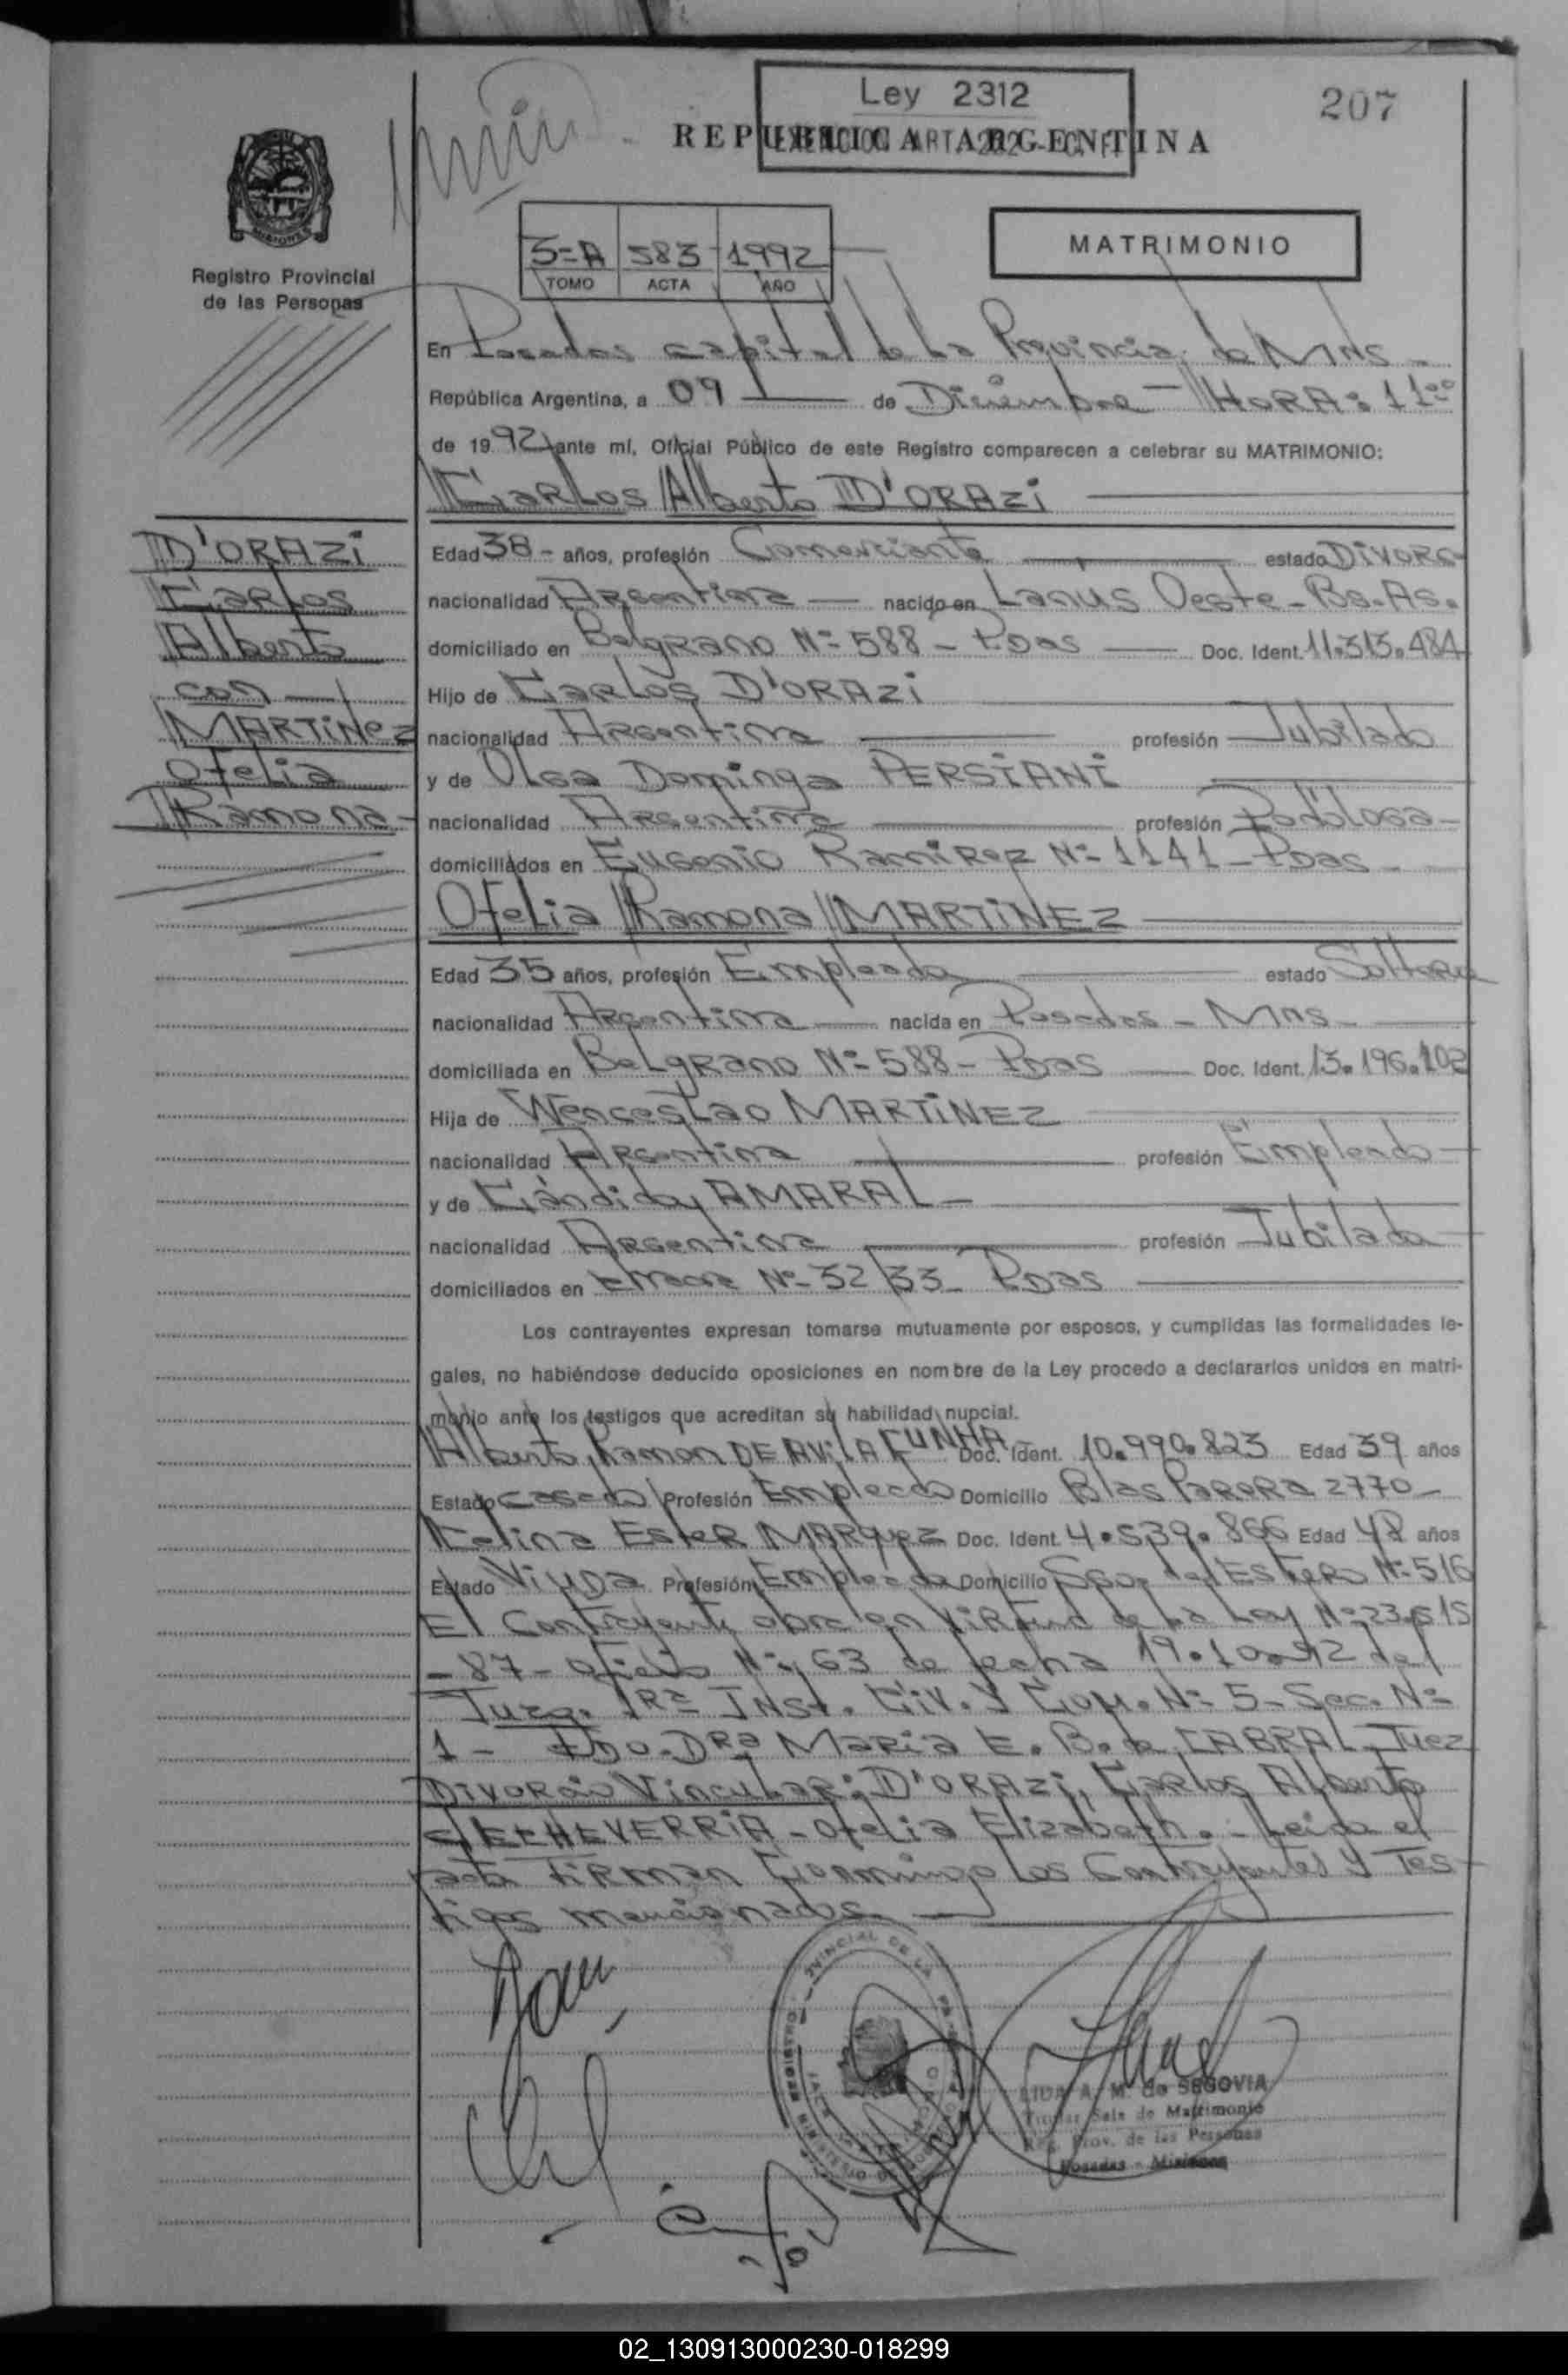 Ley 2312
207
REPUBLICA ARGENTINA
Registro Provincial
de las Personas
3=A 583 1992
TOMO ACTA AÑO
MATRIMONIO
En Posadas capital de la Provincia de Mns -
República Argentina, a 09 de Diciembre - HORA: 11ºº
de 1992 ante mí, Oficial Público de este Registro comparecen a celebrar su MATRIMONIO:
Carlos Alberto D'ORAZi
D'ORAZi
Carlos
Alberto
con
MARTiNez
Ofelia
Ramona
Edad 38 - años, profesión Comerciante estado Divorc
nacionalidad Argentina nacido en Lanus Oeste - Bs. As.
domiciliado en Belgrano Nº 588 - Pdas Doc. Ident. 11.313.484
Hijo de Carlos D'ORAZi
nacionalidad Argentina profesión Jubilado
y de Olga Dominga PERSIANI
nacionalidad Argentina profesión Podóloga
domiciliados en Eugenio Ramirez Nº 1141 - Pdas -
Ofelia Ramona MARTiNEZ
Edad 35 años, profesión Empleada estado Soltera
nacionalidad Argentina nacida en Posadas - Mns -
domiciliada en Belgrano Nº 588 - Pdas Doc. Ident. 13.196.102
Hija de Wenceslao MARTiNEZ
nacionalidad Argentina profesión Empleado
y de Cándida AMARAL
nacionalidad Argentina profesión Jubilada
domiciliados en Nº 32/33 - Pdas
Los contrayentes expresan tomarse mutuamente por esposos, y cumplidas las formalidades le-
gales, no habiéndose deducido oposiciones en nombre de la Ley procedo a declararlos unidos en matri-
monio ante los testigos que acreditan su habilidad nupcial.
Alberto Ramon DE AViLA CUNHA Doc. Ident. 10.990.823 Edad 39 años
Estado casado Profesión Empleado Domicilio Blas Parera 2770 -
Ester MARquez Doc. Ident. 4.539.866 Edad 48 años
Estado Viuda Profesión Empleada Domicilio Sgo. del Estero Nº 516
El Contrayente obra en Virtud de la Ley Nº 23.515
- 87 - Oficio Nº 63 de fecha 19.10.92 del
Juzg. 1Rª Inst. Civ. y Com. Nº 5 - Sec. Nº
1 - Fdo. DRa Maria E. B. de CABRAL Juez
Divorcio Vincular: D'ORAZi, Carlos Alberto
c/ ECHEVERRIA - Ofelia Elizabeth. - Leida el
acta Firman Conmigo los Contrayentes y Tes-
tigos mencionados.
A. M. de SEGOVIA
Titular Sala de Matrimonio
Reg. Prov. de las Personas
Posadas - Misiones
02_130913000230-018299